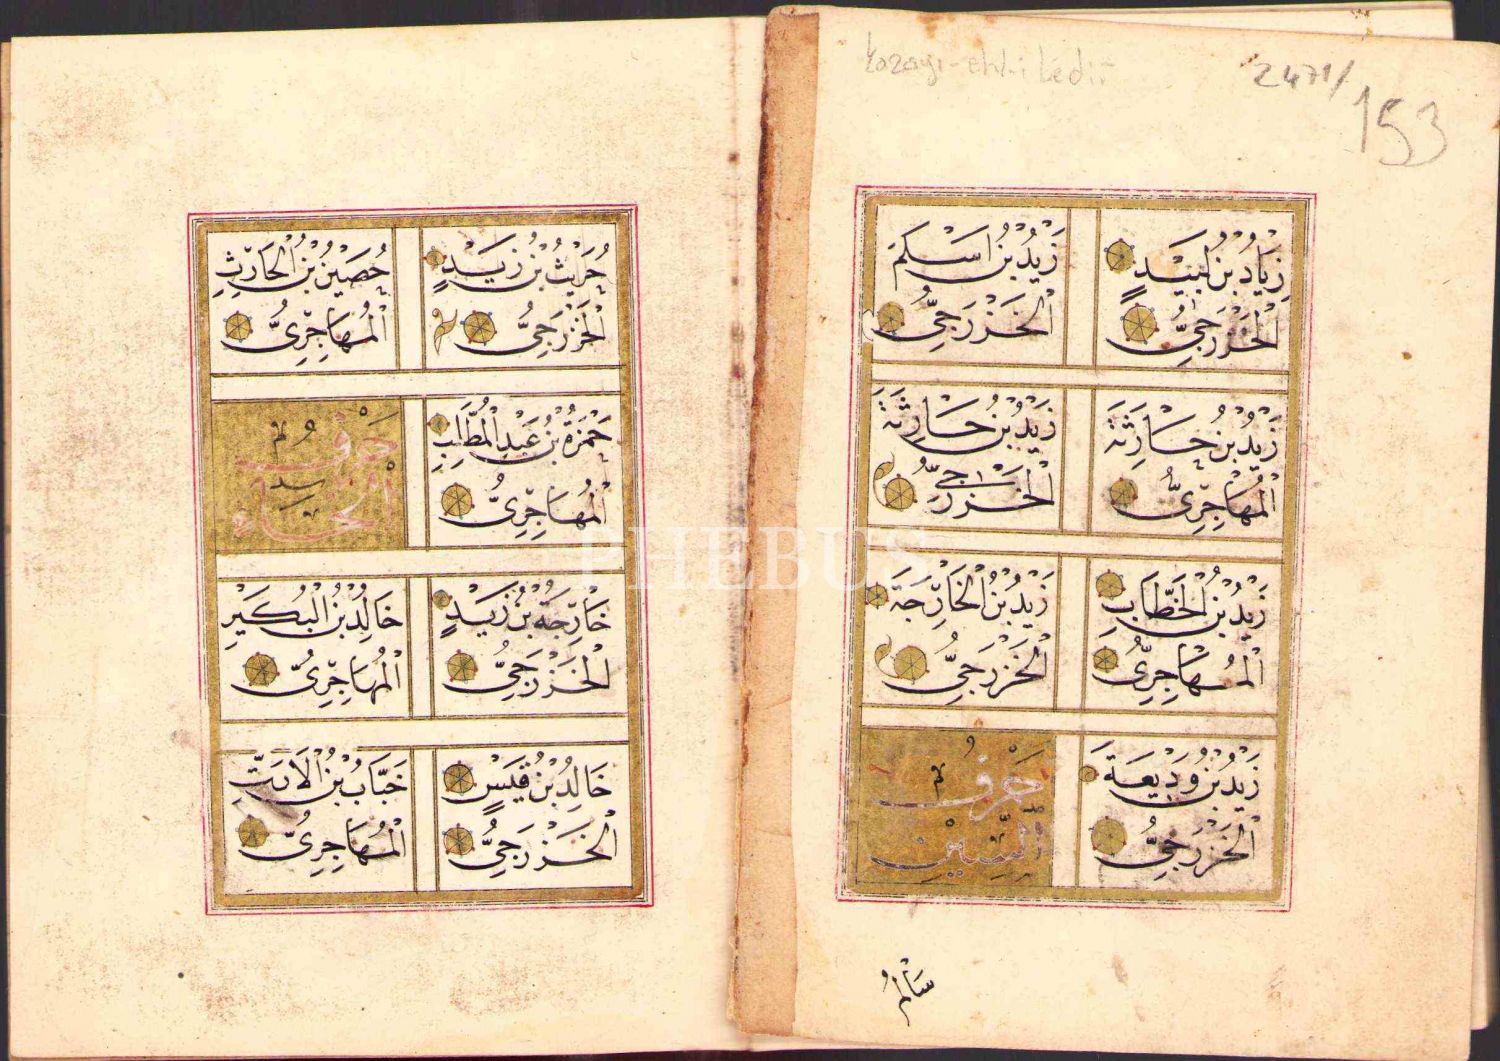 kazayı-ehl-i Bedir
2471/
153
زِيَادُ بْنُ لَبِيدٍ
الْخَزْرَجِيُّ
زَيْدُ بْنُ اَسْلَمَ
الْخَزْرَجِيُّ
زَيْدُ بْنُ حَارِثَةَ
الْمُهَاجِرِىُّ
زَيْدُ بْنُ حَارِثَةَ
الْخَزْرَجِيُّ
زَيْدُ بْنُ الْخَطَّابِ
الْمُهَاجِرِىُّ
زَيْدُ بْنُ الْخَارِجَةَ
الْخَزْرَجِيُّ
زَيْدُ بْنُ وَدِيعَةَ
الْخَزْرَجِيُّ
حَرْفُ
السِّينِ
سَالِمُ
حُرَيْثُ بْنُ زَيْدٍ
الْخَزْرَجِيُّ
حُصَيْنُ بْنُ الْحَارِثِ
الْمُهَاجِرِىُّ
حَمْزَةُ بْنُ عَبْدِ الْمُطَّلِبِ
الْمُهَاجِرِىُّ
حَرْفُ
الْخَاءِ
خَارِجَةُ بْنُ زَيْدٍ
الْخَزْرَجِيُّ
خَالِدُ بْنُ الْبُكَيْرِ
الْمُهَاجِرِىُّ
خَالِدُ بْنُ قَيْسٍ
الْخَزْرَجِيُّ
خَبَّابُ بْنُ الْاَرَتِّ
الْمُهَاجِرِىُّ
PHEBUS